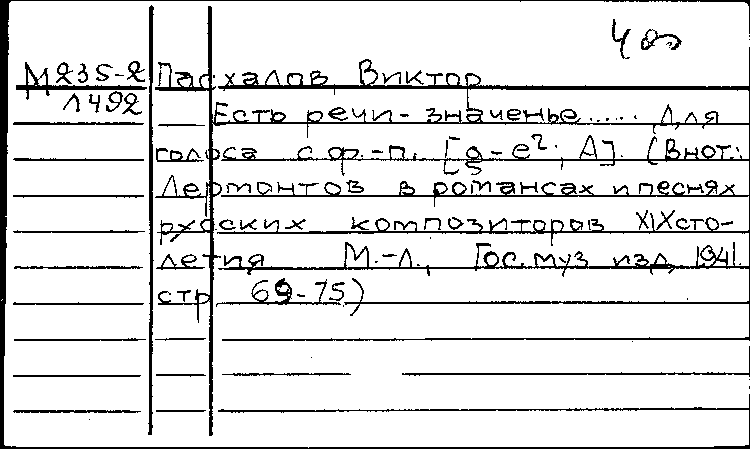 М 235-2 Пасхалов, Виктор
1492 Есть речи - значенье..... Для
голоса с ф.-п. [g-e²; A]. (В нот.:
Лермонтов в романсах и песнях
русских композиторов XIX сто-
летия М.-Л., Гос. муз. изд, 1941.
стр 69-75)